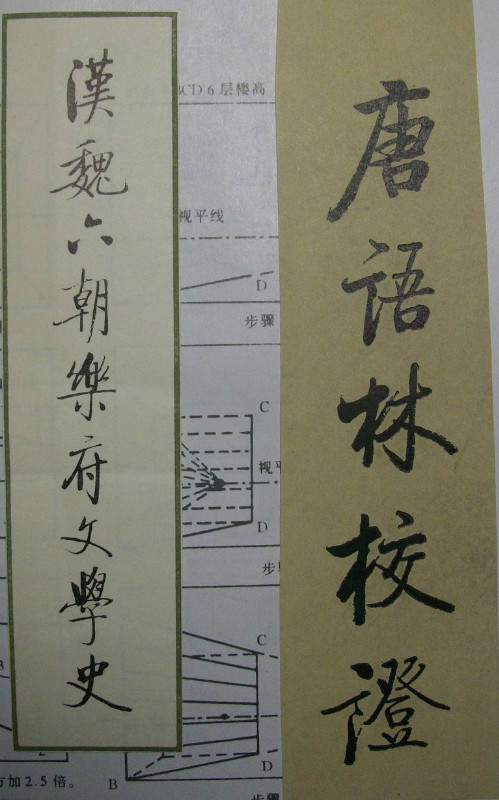 漢魏六朝樂府文學史
唐語林校證
BCD 6 层楼高
视平线
D
步骤
C
视平
D
步
C
D
B
加2.5倍。
步骤